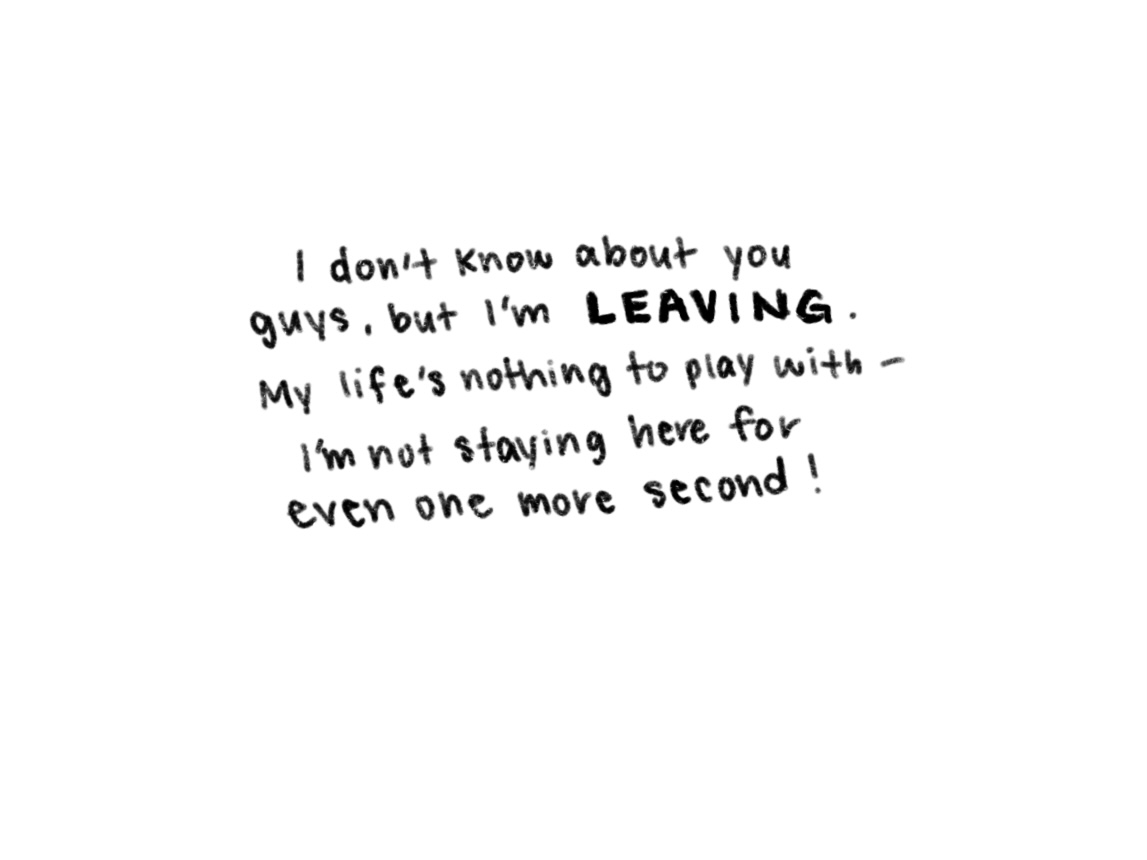 I don't know about you
guys, but I'm LEAVING.
My life's nothing to play with -
I'm not staying here for
even one more second!